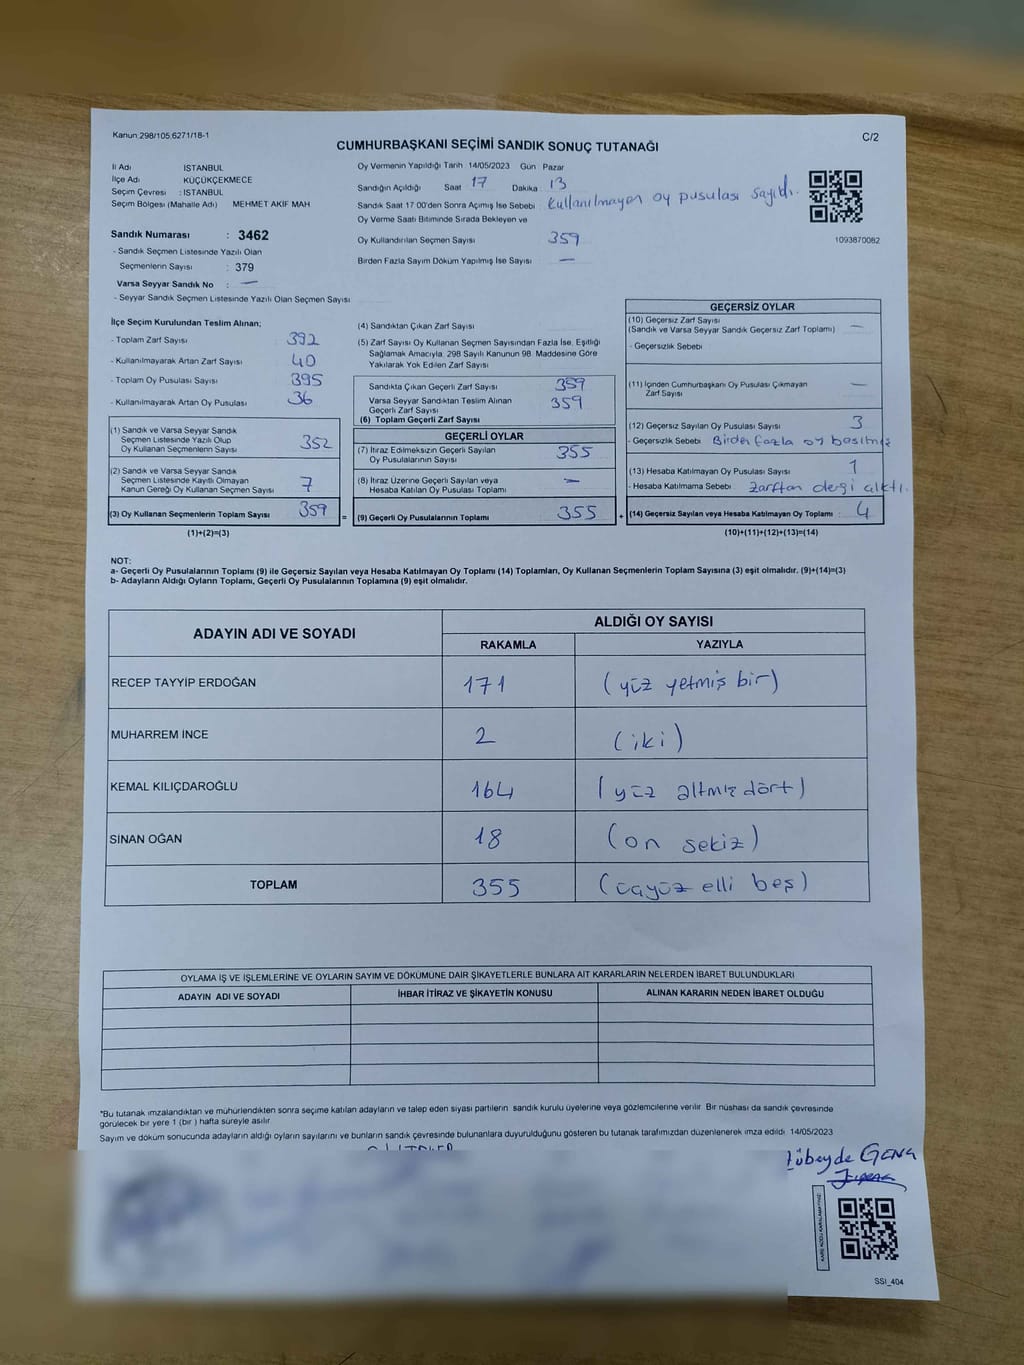 Kanun:298/105,6271/18-1
C/2
CUMHURBAŞKANI SEÇİMİ SANDIK SONUÇ TUTANAĞI
İl Adı İSTANBUL
İlçe Adı KÜÇÜKÇEKMECE
Seçim Çevresi : İSTANBUL
Seçim Bölgesi (Mahalle Adı) MEHMET AKİF MAH
Oy Vermenin Yapıldığı Tarih 14/05/2023 Gün Pazar
Sandığın Açıldığı Saat 17 Dakika 13
Sandık Saat 17 00'den Sonra Açımış İse Sebebi kullanılmayan oy pusulası sayıldı.
Oy Verme Saati Bitiminde Sırada Bekleyen ve
Oy Kullandırılan Seçmen Sayısı 359
Birden Fazla Sayım Döküm Yapılmış İse Sayısı —
1093870082
Sandık Numarası : 3462
- Sandık Seçmen Listesinde Yazılı Olan
Seçmenlerin Sayısı : 379
Varsa Seyyar Sandık No : —
- Seyyar Sandık Seçmen Listesinde Yazılı Olan Seçmen Sayısı
İlçe Seçim Kurulundan Teslim Alınan;
- Toplam Zarf Sayısı 392
- Kullanılmayarak Artan Zarf Sayısı 40
- Toplam Oy Pusulası Sayısı 395
- Kullanılmayarak Artan Oy Pusulası 36
(1) Sandık ve Varsa Seyyar Sandık
Seçmen Listesinde Yazılı Olup
Oy Kullanan Seçmenlerin Sayısı 352
(2) Sandık ve Varsa Seyyar Sandık
Seçmen Listesinde Kayıtlı Olmayan
Kanun Gereği Oy Kullanan Seçmen Sayısı 7
(3) Oy Kullanan Seçmenlerin Toplam Sayısı 359
=
(1)+(2)=(3)
(4) Sandıktan Çıkan Zarf Sayısı
(5) Zarf Sayısı Oy Kullanan Seçmen Sayısından Fazla İse, Eşitliği
Sağlamak Amacıyla, 298 Sayılı Kanunun 98. Maddesine Göre
Yakılarak Yok Edilen Zarf Sayısı
Sandıkta Çıkan Geçerli Zarf Sayısı 359
Varsa Seyyar Sandıktan Teslim Alınan
Geçerli Zarf Sayısı 359
(6) Toplam Geçerli Zarf Sayısı
GEÇERLİ OYLAR
(7) İtiraz Edilmeksizin Geçerli Sayılan
Oy Pusulalarının Sayısı 355
(8) İtiraz Üzerine Geçerli Sayılan veya
Hesaba Katılan Oy Pusulası Toplamı —
(9) Geçerli Oy Pusulalarının Toplamı 355
+
GEÇERSİZ OYLAR
(10) Geçersiz Zarf Sayısı
(Sandık ve Varsa Seyyar Sandık Geçersiz Zarf Toplamı) —
- Geçersizlik Sebebi
(11) İçinden Cumhurbaşkanı Oy Pusulası Çıkmayan
Zarf Sayısı —
(12) Geçersiz Sayılan Oy Pusulası Sayısı 3
- Geçersizlik Sebebi Birden fazla oy basılmış
(13) Hesaba Katılmayan Oy Pusulası Sayısı 1
- Hesaba Katılmama Sebebi zarftan dergi çıktı.
(14) Geçersiz Sayılan veya Hesaba Katılmayan Oy Toplamı : 4
(10)+(11)+(12)+(13)=(14)
NOT:
a- Geçerli Oy Pusulalarının Toplamı (9) ile Geçersiz Sayılan veya Hesaba Katılmayan Oy Toplamı (14) Toplamları, Oy Kullanan Seçmenlerin Toplam Sayısına (3) eşit olmalıdır. (9)+(14)=(3)
b- Adayların Aldığı Oyların Toplamı, Geçerli Oy Pusulalarının Toplamına (9) eşit olmalıdır.
ADAYIN ADI VE SOYADI
ALDIĞI OY SAYISI
RAKAMLA YAZIYLA
RECEP TAYYİP ERDOĞAN 171 (yüz yetmiş bir)
MUHARREM İNCE 2 (iki)
KEMAL KILIÇDAROĞLU 164 (yüz altmış dört)
SİNAN OĞAN 18 (on sekiz)
TOPLAM 355 (üçyüz elli beş)
OYLAMA İŞ VE İŞLEMLERİNE VE OYLARIN SAYIM VE DÖKÜMÜNE DAİR ŞİKAYETLERLE BUNLARA AİT KARARLARIN NELERDEN İBARET BULUNDUKLARI
ADAYIN ADI VE SOYADI İHBAR İTİRAZ VE ŞİKAYETİN KONUSU ALINAN KARARIN NEDEN İBARET OLDUĞU
*Bu tutanak imzalandıktan ve mühürlendikten sonra seçime katılan adayların ve talep eden siyasi partilerin sandık kurulu üyelerine veya gözlemcilerine verilir. Bir nüshası da sandık çevresinde
görülecek bir yere 1 (bir) hafta süreyle asılır
Sayım ve döküm sonucunda adayların aldığı oyların sayılarını ve bunların sandık çevresinde bulunanlara duyurulduğunu gösteren bu tutanak tarafımızdan düzenlenerek imza edildi. 14/05/2023
Zübeyde GENÇ
SSI_404